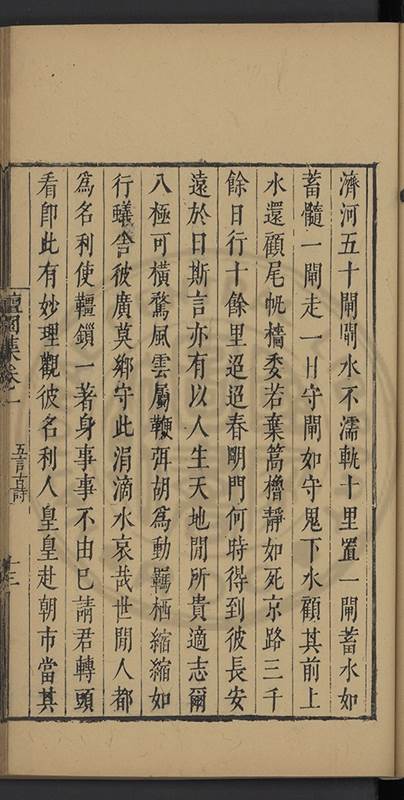 濟河五十閘閘水不濡軌十里置一閘蓄水如
蓄髓一閘走一日守閘如守鬼下水顧其前上
水還顧尾帆檣委若棄篙櫓靜如死京路三千
餘日行十餘里迢迢春明門何時得到彼長安
遠於日斯言亦有以人生天地間所貴適志爾
八極可橫騖風雲屬鞭弭胡爲動羈栖縮縮如
行蟻舍彼廣莫鄉守此涓滴水哀哉世間人都
爲名利使韁鎖一著身事事不由已請君轉頭
看卽此有妙理觀彼名利人皇皇赴朝市當其
集卷一
五言古詩
十三